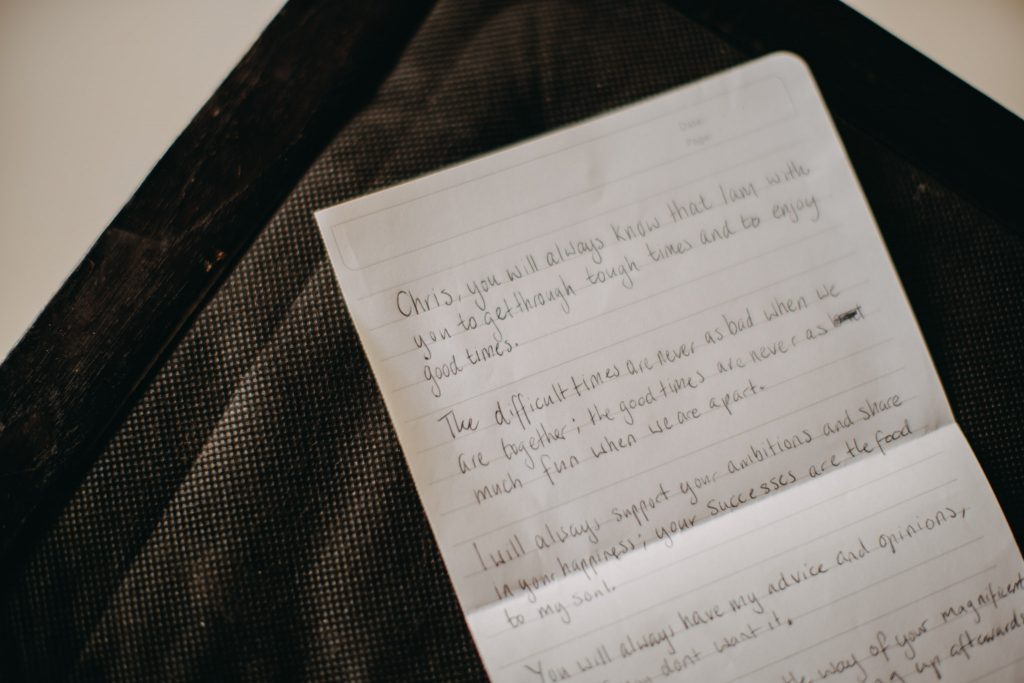 Date:
Page:
Chris, you will always know that I am with
you to get through tough times and to enjoy
good times.
The difficult times are never as bad when we
are together; the good times are never as
much fun when we are apart.
I will always support your ambitions and share
in your happiness; your successes are the food
to my soul.
You will always have my advice and opinions,
dont want it.
the way of your magnificent
up afterwards